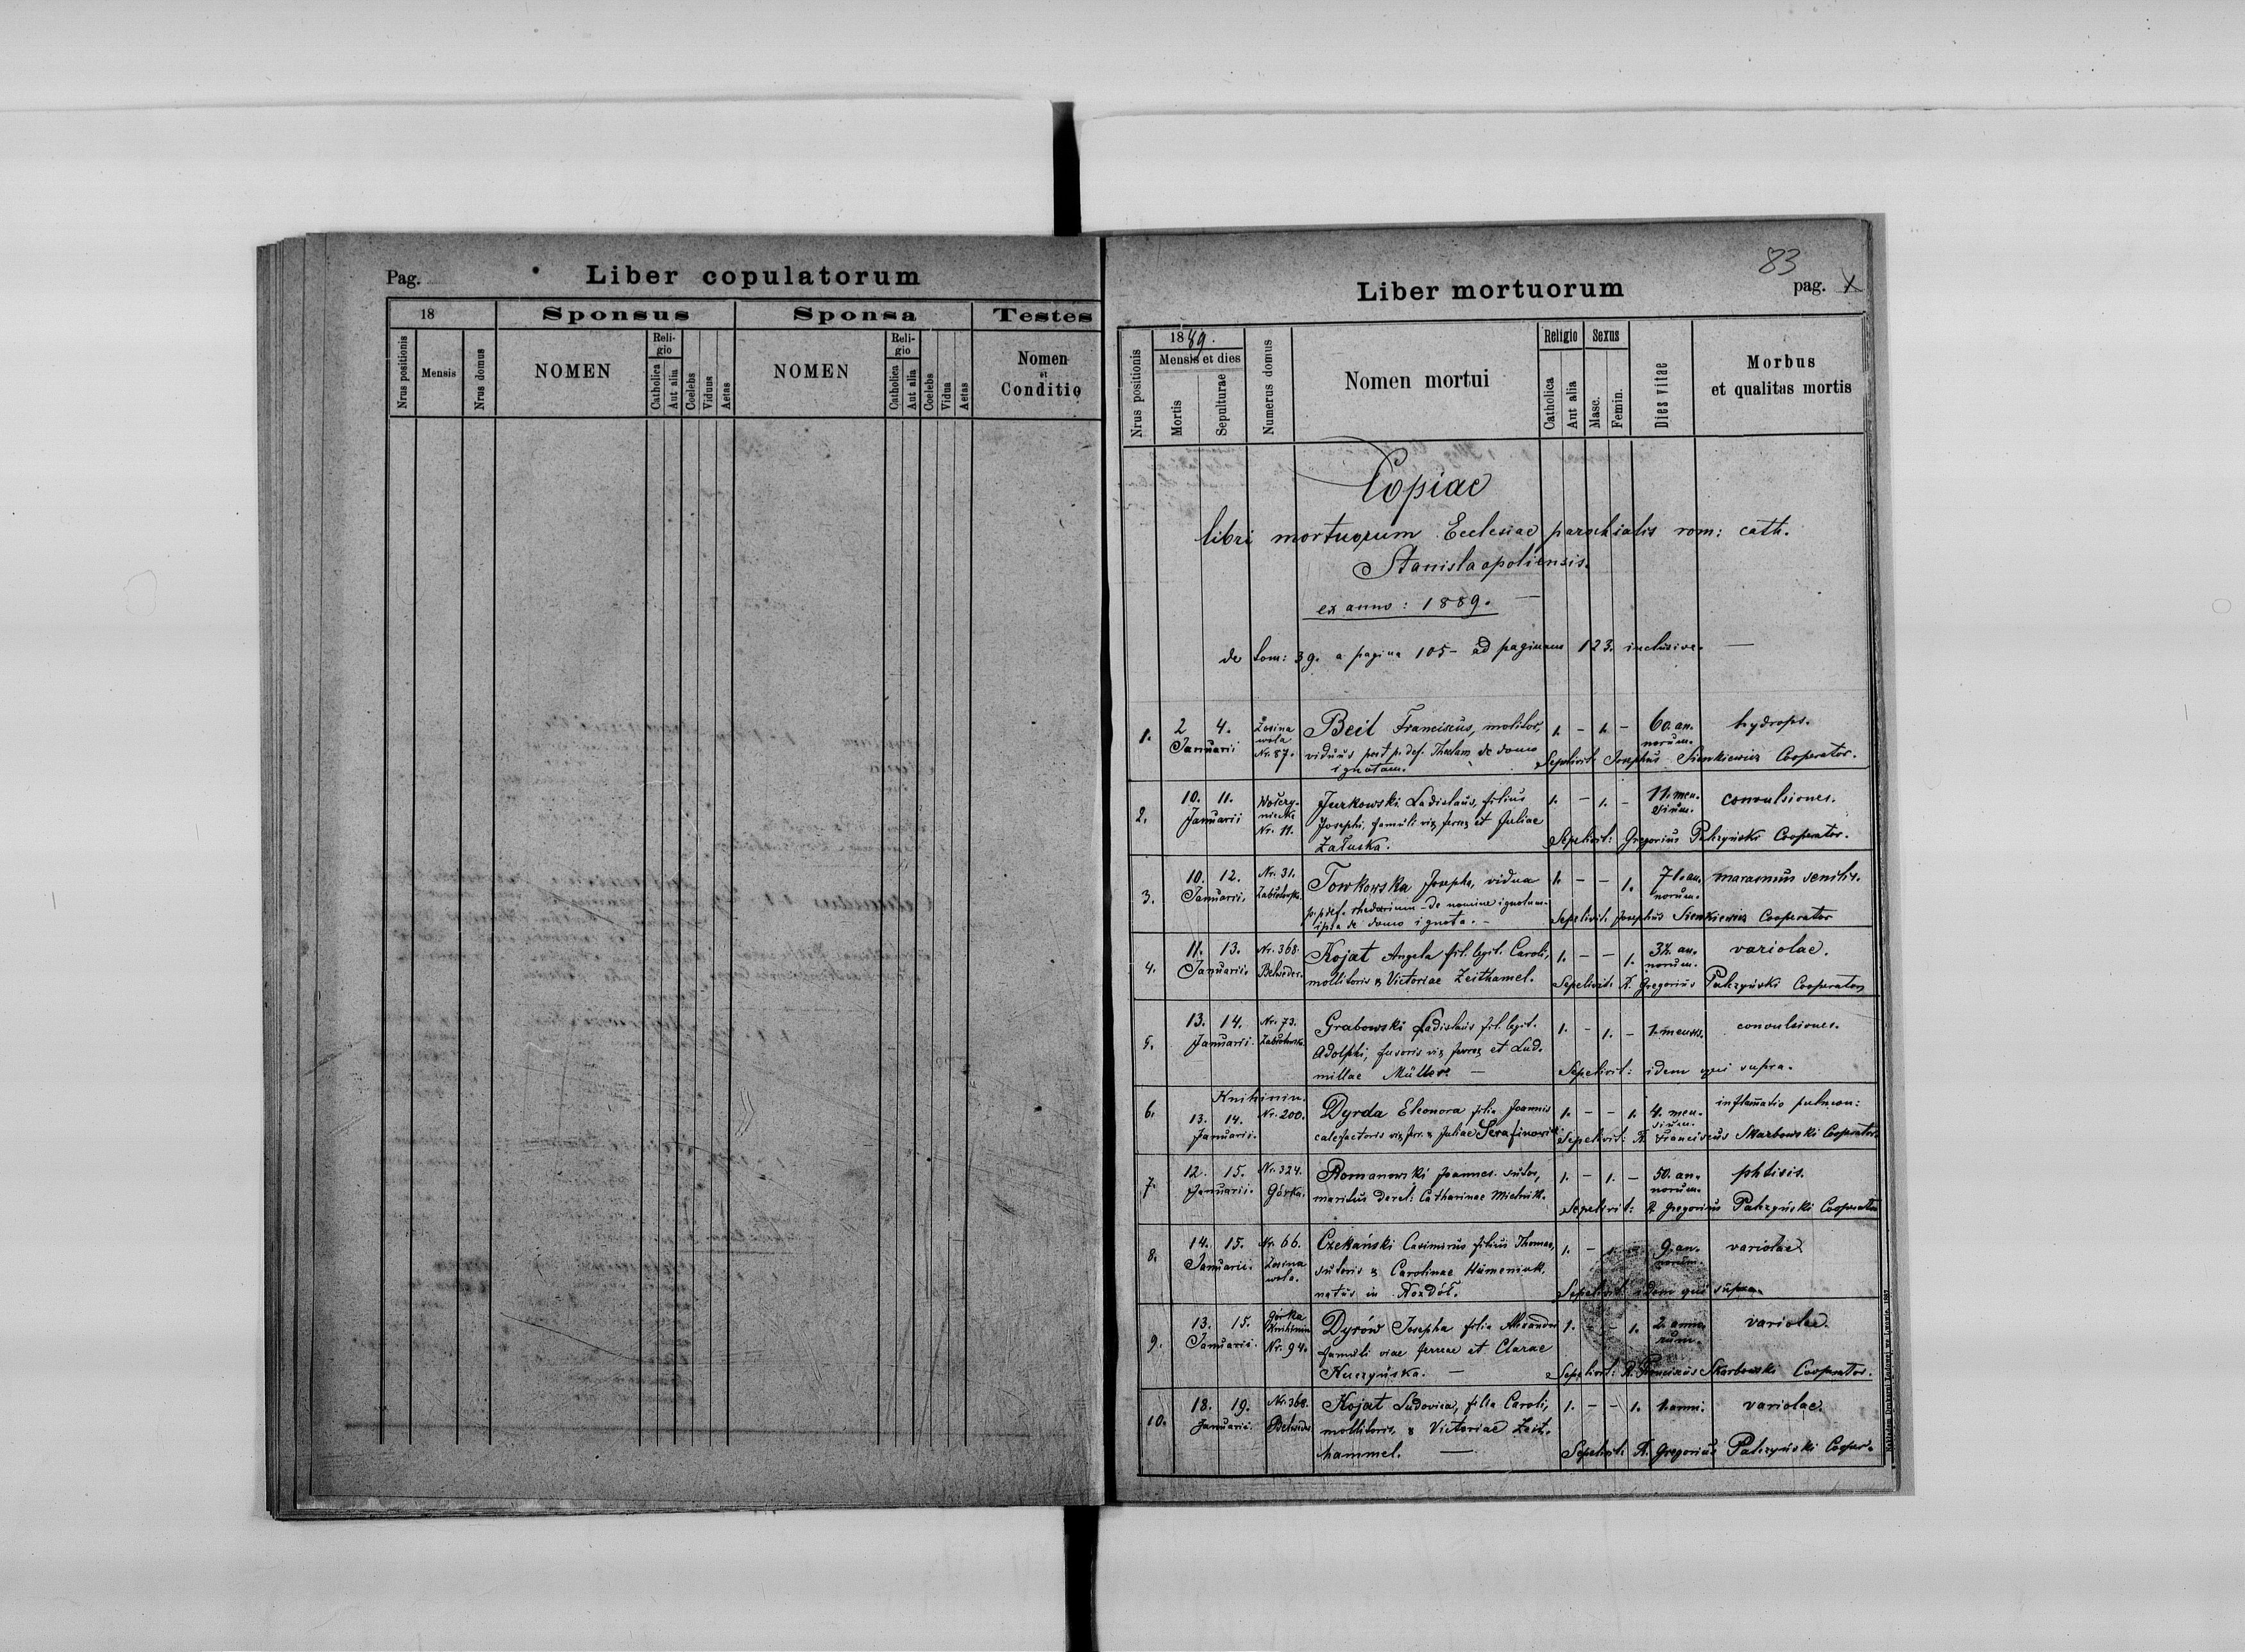 Pag. Liber copulatorum
18 Sponsus Sponsa Testes
Nrus positionis Mensis Nrus domus NOMEN Religio Catholica Aut alia Coelebs Viduus Aetas NOMEN Religio Catholica Aut alia Coelebs Vidua Aetas Nomen et Conditio
83
Liber mortuorum pag.
Nrus positionis 1889. Mensis et dies Mortis Sepulturae Numerus domus Nomen mortui Religio Catholica Aut alia Sexus Masc. Femin. Dies vitae Morbus et qualitas mortis
Copiae
libri mortuorum Ecclesiae parochialis rom: cath.
Stanislaopoliensis.
ex anno: 1889. —
de tom: 39. a pagina 105 - ad paginam 123. inclusive. —
1. 2 4. Zosina Beil Franciscus, molitor, 1. - 1. - 60 an- hydrops.
Januarii wola viduus post p. def. Theclam de domo norum.
Nr. 87. ignotam. Sepelivit Josephus Sienkiewicz Cooperator.
2. 10. 11. Jurkowski Ladislaus, filius 1. - 1. - 11. men- convulsiones.
Januarii Josephi, famuli viæ ferreæ et Juliae sium.
Nr. 11. Załuska. Sepelivit: Gregorius Cooperator.
3. 10. 12. Nr. 31. Towkowska Josepha, vidua 1. - - 1. 71. an- marasmus senilis.
Januarii. p. p. def. - de nomine ignotum - norum.
ipsa de domo ignota. - Sepelivit. Josephus Sienkiewicz Cooperator
4. 11. 13. Nr. 368. Kojat Angela fil. legit. Caroli, 1. - - 1. an- variolae.
Januarii. Belweder. mollitoris & Victoriae Zeithamel. norum.
Sepelivit. R. Gregorius Cooperator
5. 13. 14. Nr. 73. Grabowski Ladislaus fil. legit. 1. - 1. - 1. mensis. convulsiones.
Januarii. Adolphi, fusoris viæ ferreæ et Lud-
millae Müller. — Sepelivit: idem qui supra.
6. Knihinin.
13. 14. Nr. 200. Dyrda Eleonora filia Joannis 1. - - 1. 4. men- inflamatio pulmon:
Januarii. calefactoris viæ ferr. & Juliae sium.
Sepelivit: R. Franciscus Skarbowski Cooperator.
7. 12. 15. Nr. 324. Romanowski Joannes. sutor, 1. - 1. - 50. an- phtisis.
Januarii. Górka. maritus derel: Catharinae Mielnik. norum.
Sepelivit: R. Gregorius Cooperator
8. 14. 15. Nr. 66. Czekański Casimirus filius Thomae, 1. - 9. an- variolae.
Januarii. Zosina sutoris & Carolinae Humeniuk, norum.
wola. natus in Rozdół. Sepelivit: idem qui supra.
9. 13. 15. Górka Dyrów Josepha filia Alexandri 1. - - 1. 2. anno- variolae.
Januarii. Knihinin famuli viae ferreae et Clarae rum.
Nr. 94. Kuczyńska. — Sepelivit: R. Franciscus Skarbowski Cooperator.
10. 18. 19. Nr. 368. Kojat Ludovica, filia Caroli, 1. - - 1. 1. anni. variolae.
Januarii. Belweder mollitoris, & Victoriae Zeit-
hammel. — Sepelivit. R. Gregorius Cooper.